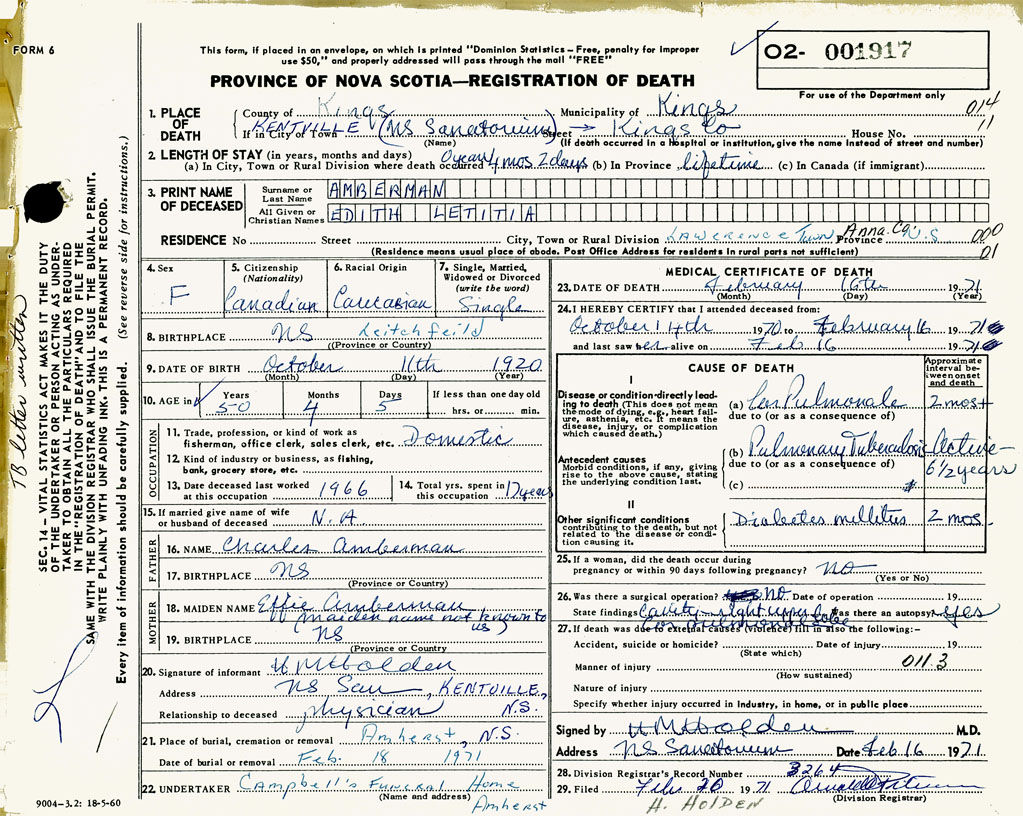 FORM 6
This form, if placed in an envelope, on which is printed "Dominion Statistics – Free, penalty for improper
use $50," and properly addressed will pass through the mail "FREE"
O2- 001917
PROVINCE OF NOVA SCOTIA—REGISTRATION OF DEATH
For use of the Department only
014
11
1. PLACE OF DEATH
County of Kings Municipality of Kings
If in City or Town KENTVILLE (NS Sanatorium) Street → Kings Co House No.
(Name) (If death occurred in a hospital or institution, give the name instead of street and number)
2. LENGTH OF STAY (in years, months and days)
(a) In City, Town or Rural Division where death occurred 0 years 4 mos 2 days (b) In Province lifetime (c) In Canada (if immigrant)
3. PRINT NAME OF DECEASED
Surname or Last Name AMBERMAN
All Given or Christian Names EDITH LETITIA
RESIDENCE No Street City, Town or Rural Division LAWERENCE TOWN Anna. Co Province N.S 000
(Residence means usual place of abode. Post Office Address for residents in rural parts not sufficient) 01
4. Sex F
5. Citizenship (Nationality) Canadian
6. Racial Origin Caucasian
7. Single, Married, Widowed or Divorced (write the word) Single
8. BIRTHPLACE NS Leitchfeild
(Province or Country)
9. DATE OF BIRTH October 11th 1920
(Month) (Day) (Year)
10. AGE in Years 50 Months 4 Days 5 If less than one day old hrs. or min.
OCCUPATION
11. Trade, profession, or kind of work as
fisherman, office clerk, sales clerk, etc. Domestic
12. Kind of industry or business, as fishing,
bank, grocery store, etc.
13. Date deceased last worked at this occupation 1966
14. Total yrs. spent in this occupation 17 years
15. If married give name of wife
or husband of deceased N.A
FATHER
16. NAME Charles Amberman
17. BIRTHPLACE NS
(Province or Country)
MOTHER
18. MAIDEN NAME Effie Amberman
(maiden name not known to us)
19. BIRTHPLACE NS
(Province or Country
20. Signature of informant H M Holden
Address NS San, KENTVILLE,
Relationship to deceased physician N.S.
21. Place of burial, cremation or removal Amherst, N.S.
Date of burial or removal Feb. 18 1971
22. UNDERTAKER Campbell's Funeral Home
(Name and address) Amherst
9004–3.2: 18-5-60
MEDICAL CERTIFICATE OF DEATH
23. DATE OF DEATH February 16th 1971
(Month) (Day) (Year)
24. I HEREBY CERTIFY that I attended deceased from:
October 14th 1970 to February 16 1971
and last saw her alive on Feb 16 1971
CAUSE OF DEATH
Approximate interval between onset and death
I
Disease or condition directly leading to death (This does not mean the mode of dying, e.g., heart failure, asthenia, etc. It means the disease, injury, or complication which caused death.)
(a) Cor Pulmonale 2 mos+
due to (or as a consequence of)
Antecedent causes
Morbid conditions, if any, giving rise to the above cause, stating the underlying condition last.
(b) Pulmonary Tuberculosis Active –
due to (or as a consequence of) 6 1/2 years
(c)
II
Other significant conditions
contributing to the death, but not related to the disease or condition causing it.
Diabetes mellitus 2 mos.
25. If a woman, did the death occur during
pregnancy or within 90 days following pregnancy? NO
(Yes or No)
26. Was there a surgical operation? NO Date of operation 19
State findings Cavity – right upper lobe Was there an autopsy? yes
cor pulmonale
27. If death was due to external causes (violence) fill in also the following:–
Accident, suicide or homicide? Date of injury 19
(State which)
Manner of injury 011.3
(How sustained)
Nature of injury
Specify whether injury occurred in industry, in home, or in public place
Signed by H M Holden M.D.
Address NS Sanatorium Date Feb 16 1971.
28. Division Registrar's Record Number 3264
29. Filed Feb 20 1971
(Division Registrar)
H. HOLDEN
SEC. 14 – VITAL STATISTICS ACT MAKES IT THE DUTY
OF THE UNDERTAKER OR PERSON ACTING AS UNDER-
TAKER TO OBTAIN ALL THE PARTICULARS REQUIRED
IN THE "REGISTRATION OF DEATH" AND TO FILE THE
SAME WITH THE DIVISION REGISTRAR WHO SHALL ISSUE THE BURIAL PERMIT.
WRITE PLAINLY WITH UNFADING INK. THIS IS A PERMANENT RECORD.
Every item of information should be carefully supplied. (See reverse side for instructions.)
TB letter written